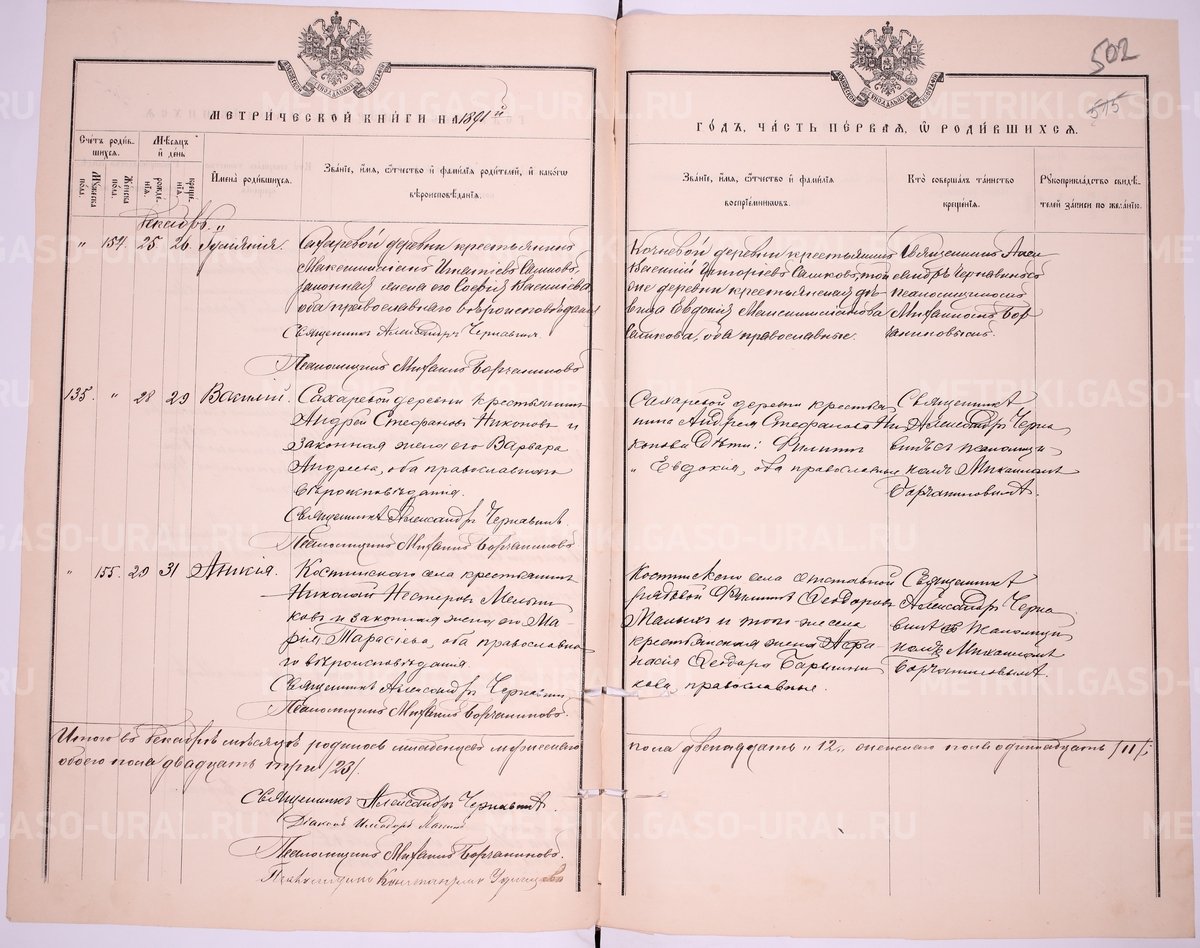 502
575
МЕТРИЧЕСКОЙ КНИГИ НА 1891й
ГОДЪ, ЧАСТЬ ПЕРВАЯ, Ѡ РОДИВШИХСЯ.
Счетъ родив-
шихся.
Мѣсяцъ
и день
Мужеска
пола.
Женска
пола.
рожде-
нія.
креще-
нія.
Имена родившихся.
Званіе, имя, отчество и фамилія родителей, и какогѡ
вѣроисповѣданія.
Званіе, имя, отчество и фамилія
воспріемниковъ.
Кто совершалъ таинство
крещенія.
Рукоприкладство свидѣ-
телей записи по желанію.
Декабрь
" 154. 25 26
Сахаревой деревни крестьянинъ
Максимиліанъ Игнатіевъ
законная жена его Софія Васильева
оба православнаго вѣроисповѣданія
Священникъ Александръ Чернавинъ
Псаломщикъ Михаилъ Борчаниновъ
Кочневой деревни крестьянинъ
Василій Григорьевъ той
же деревни крестьянская дѣ-
вица Евдокія Максимиліанова
оба православные.
Священникъ Алек-
сандръ Чернавинъ съ
псаломщикомъ
Михаиломъ Бор-
чаниновымъ.
135. " 28 29 Василій.
Сахаревой деревни крестьянинъ
Андрей Стефановъ Никоновъ и
законная жена его Варвара
Андреева, оба православнаго
вѣроисповѣданія.
Священникъ Александръ Чернавинъ.
Псаломщикъ Михаилъ Борчаниновъ
Сахаревой деревни крестья-
нина Андрея Стефанова Ни-
конова дѣти: Филиппъ
и Евдокія, оба православные
Священникъ
Александръ Черна-
винъ съ псаломщи-
комъ Михаиломъ
Борчаниновымъ.
" 155. 29 31 Анисія.
Костинского села крестьянинъ
Николай Нестеровъ Мельни-
ковъ и законная жена его Ма-
рия Тарасіева, оба православна-
го вѣроисповѣданія.
Священникъ Александръ Чернавинъ
Псаломщикъ Михаилъ Борчаниновъ.
Костинского села отставной
рядовой Филиппъ Ѳеодоровъ
Малыхъ и того же села
крестьянская жена Аѳа-
насія Ѳеодора
православные.
Священникъ
Александръ Черна-
винъ съ псаломщи-
комъ Михаиломъ
Борчаниновымъ.
Итого въ Декабрѣ мѣсяцѣ родилось младенцевъ мужескаго
пола двенадцать "12" женскаго пола одинадцать /11/
обоего пола двадцать три /23/.
Священникъ Александръ Чернавинъ.
Діаконъ
Псаломщикъ Михаилъ Борчаниновъ.
Псаломщикъ Константинъ
METRIKI.GASO-URAL.RU